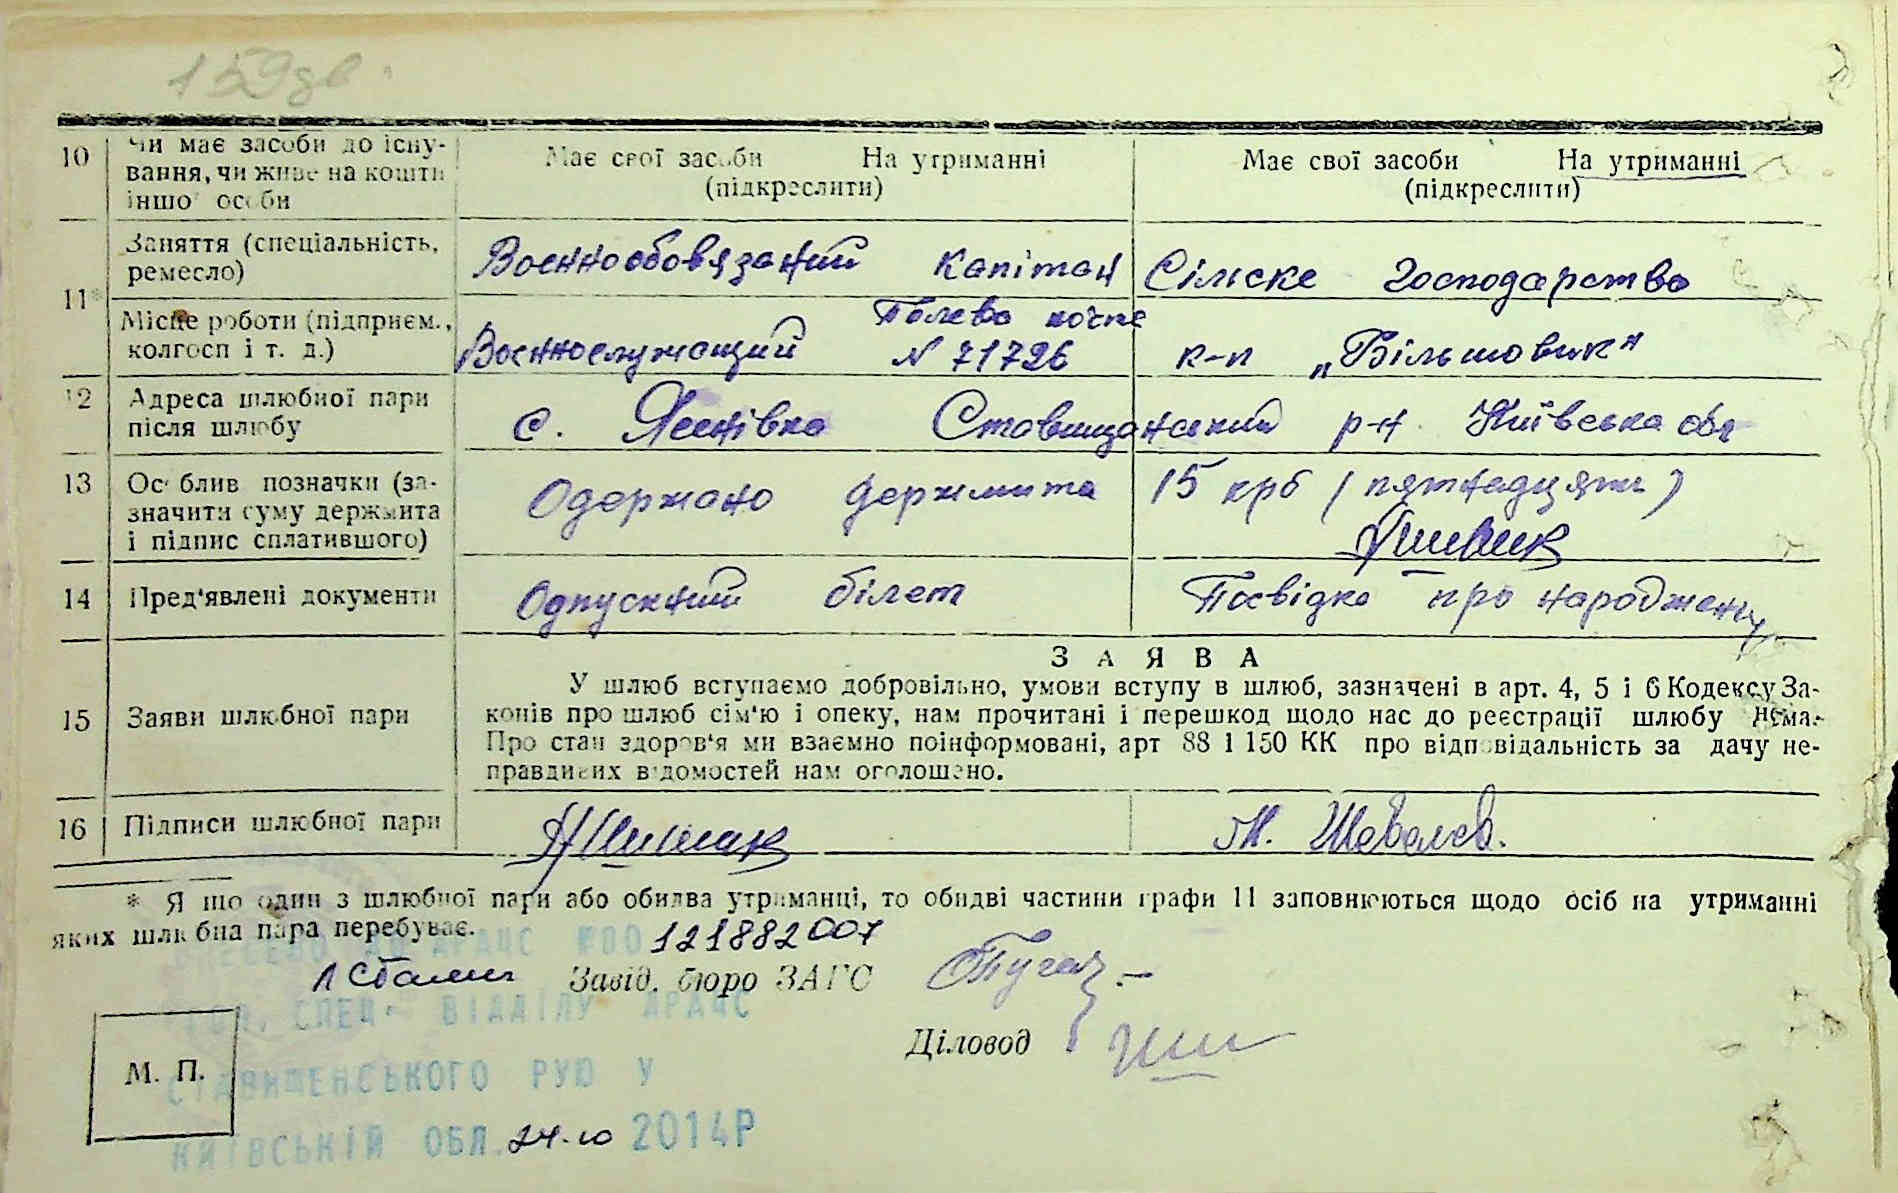 159зв
10 Чи має засоби до існу-
вання, чи живе на кошти
іншої особи
Має свої засоби На утриманні
(підкреслити)
Має свої засоби На утриманні
(підкреслити)
11* Заняття (спеціальність,
ремесло)
Воєннообовязаний капітан
Сільске господарство
Місце роботи (підприєм.,
колгосп і т. д.)
Полева почта
Воєннослужащий N 71726
к-п „Більшовик"
12 Адреса шлюбної пари
після шлюбу
с. Ясенівка Ставищанський р-н Київська обл
13 Особлив позначки (за-
значити суму держмита
і підпис сплатившого)
Одержано держмита 15 крб (пятнадцять)
14 Пред'явлені документи
Одпускний білет
Посвідка про народження
ЗАЯВА
15 Заяви шлюбної пари
У шлюб вступаємо добровільно, умови вступу в шлюб, зазначені в арт. 4, 5 і 6 Кодексу За-
конів про шлюб сім'ю і опеку, нам прочитані і перешкод щодо нас до реєстрації шлюбу нема.
Про стан здоров'я ми взаємно поінформовані, арт 88 1 150 КК про відповідальність за дачу не-
правдивих відомостей нам оголошено.
16 Підписи шлюбної пари
М. Шевелєв.
* Якщо один з шлюбної пари або обидва утриманці, то обидві частини графи 11 заповнюються щодо осіб на утриманні
яких шлюбна пара перебуває.
ВНЕСЕНО ДО АРАЦС 00121882007
Завід. бюро ЗАГС
СПЕЦ- ВІДДІЛУ ДРАЦС
Діловод
М. П.
СТАВИЩЕНСЬКОГО РУЮ У
КИЇВСЬКІЙ ОБЛ. 24.10 2014Р